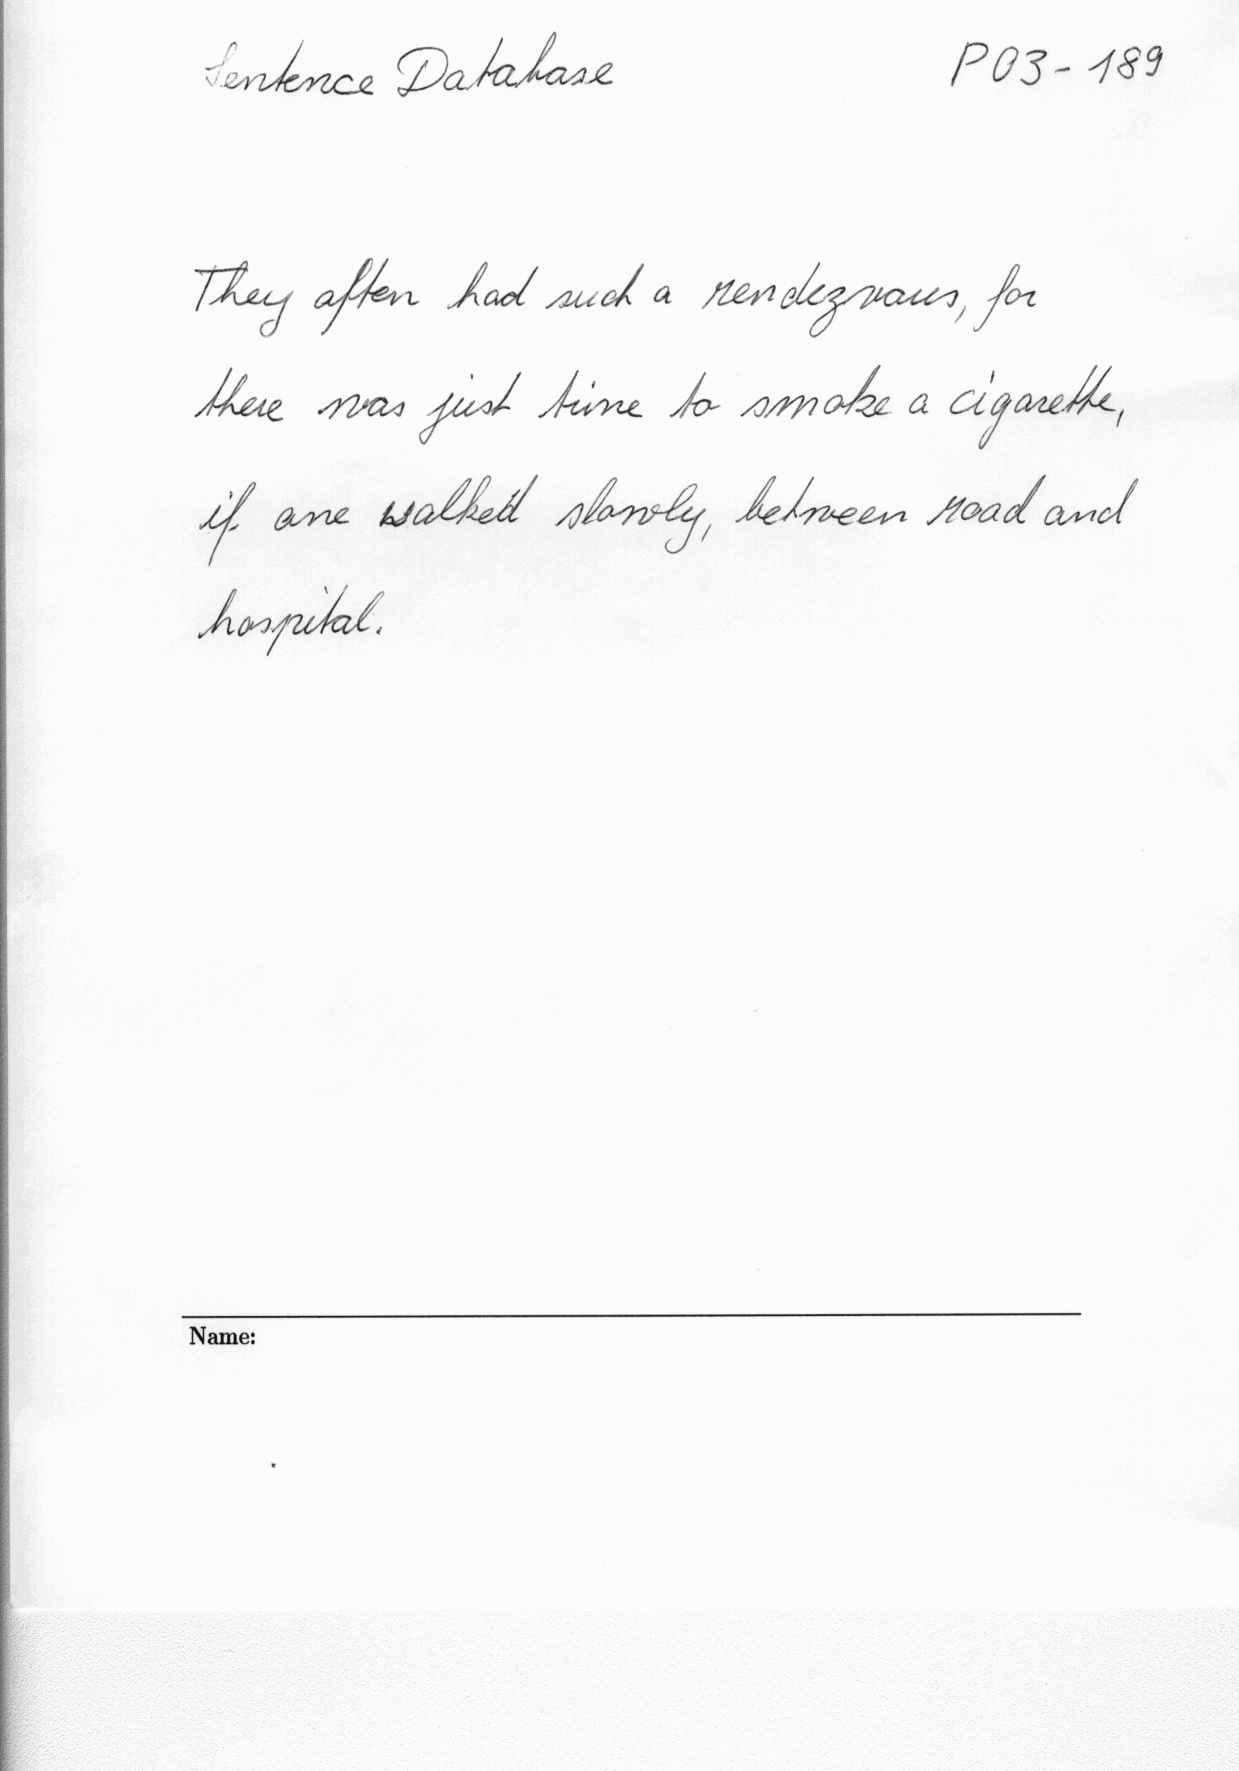 Sentence Database P03-189
They often had such a rendezvous, for
there was just time to smoke a cigarette,
if one walked slowly, between road and
hospital.
Name: